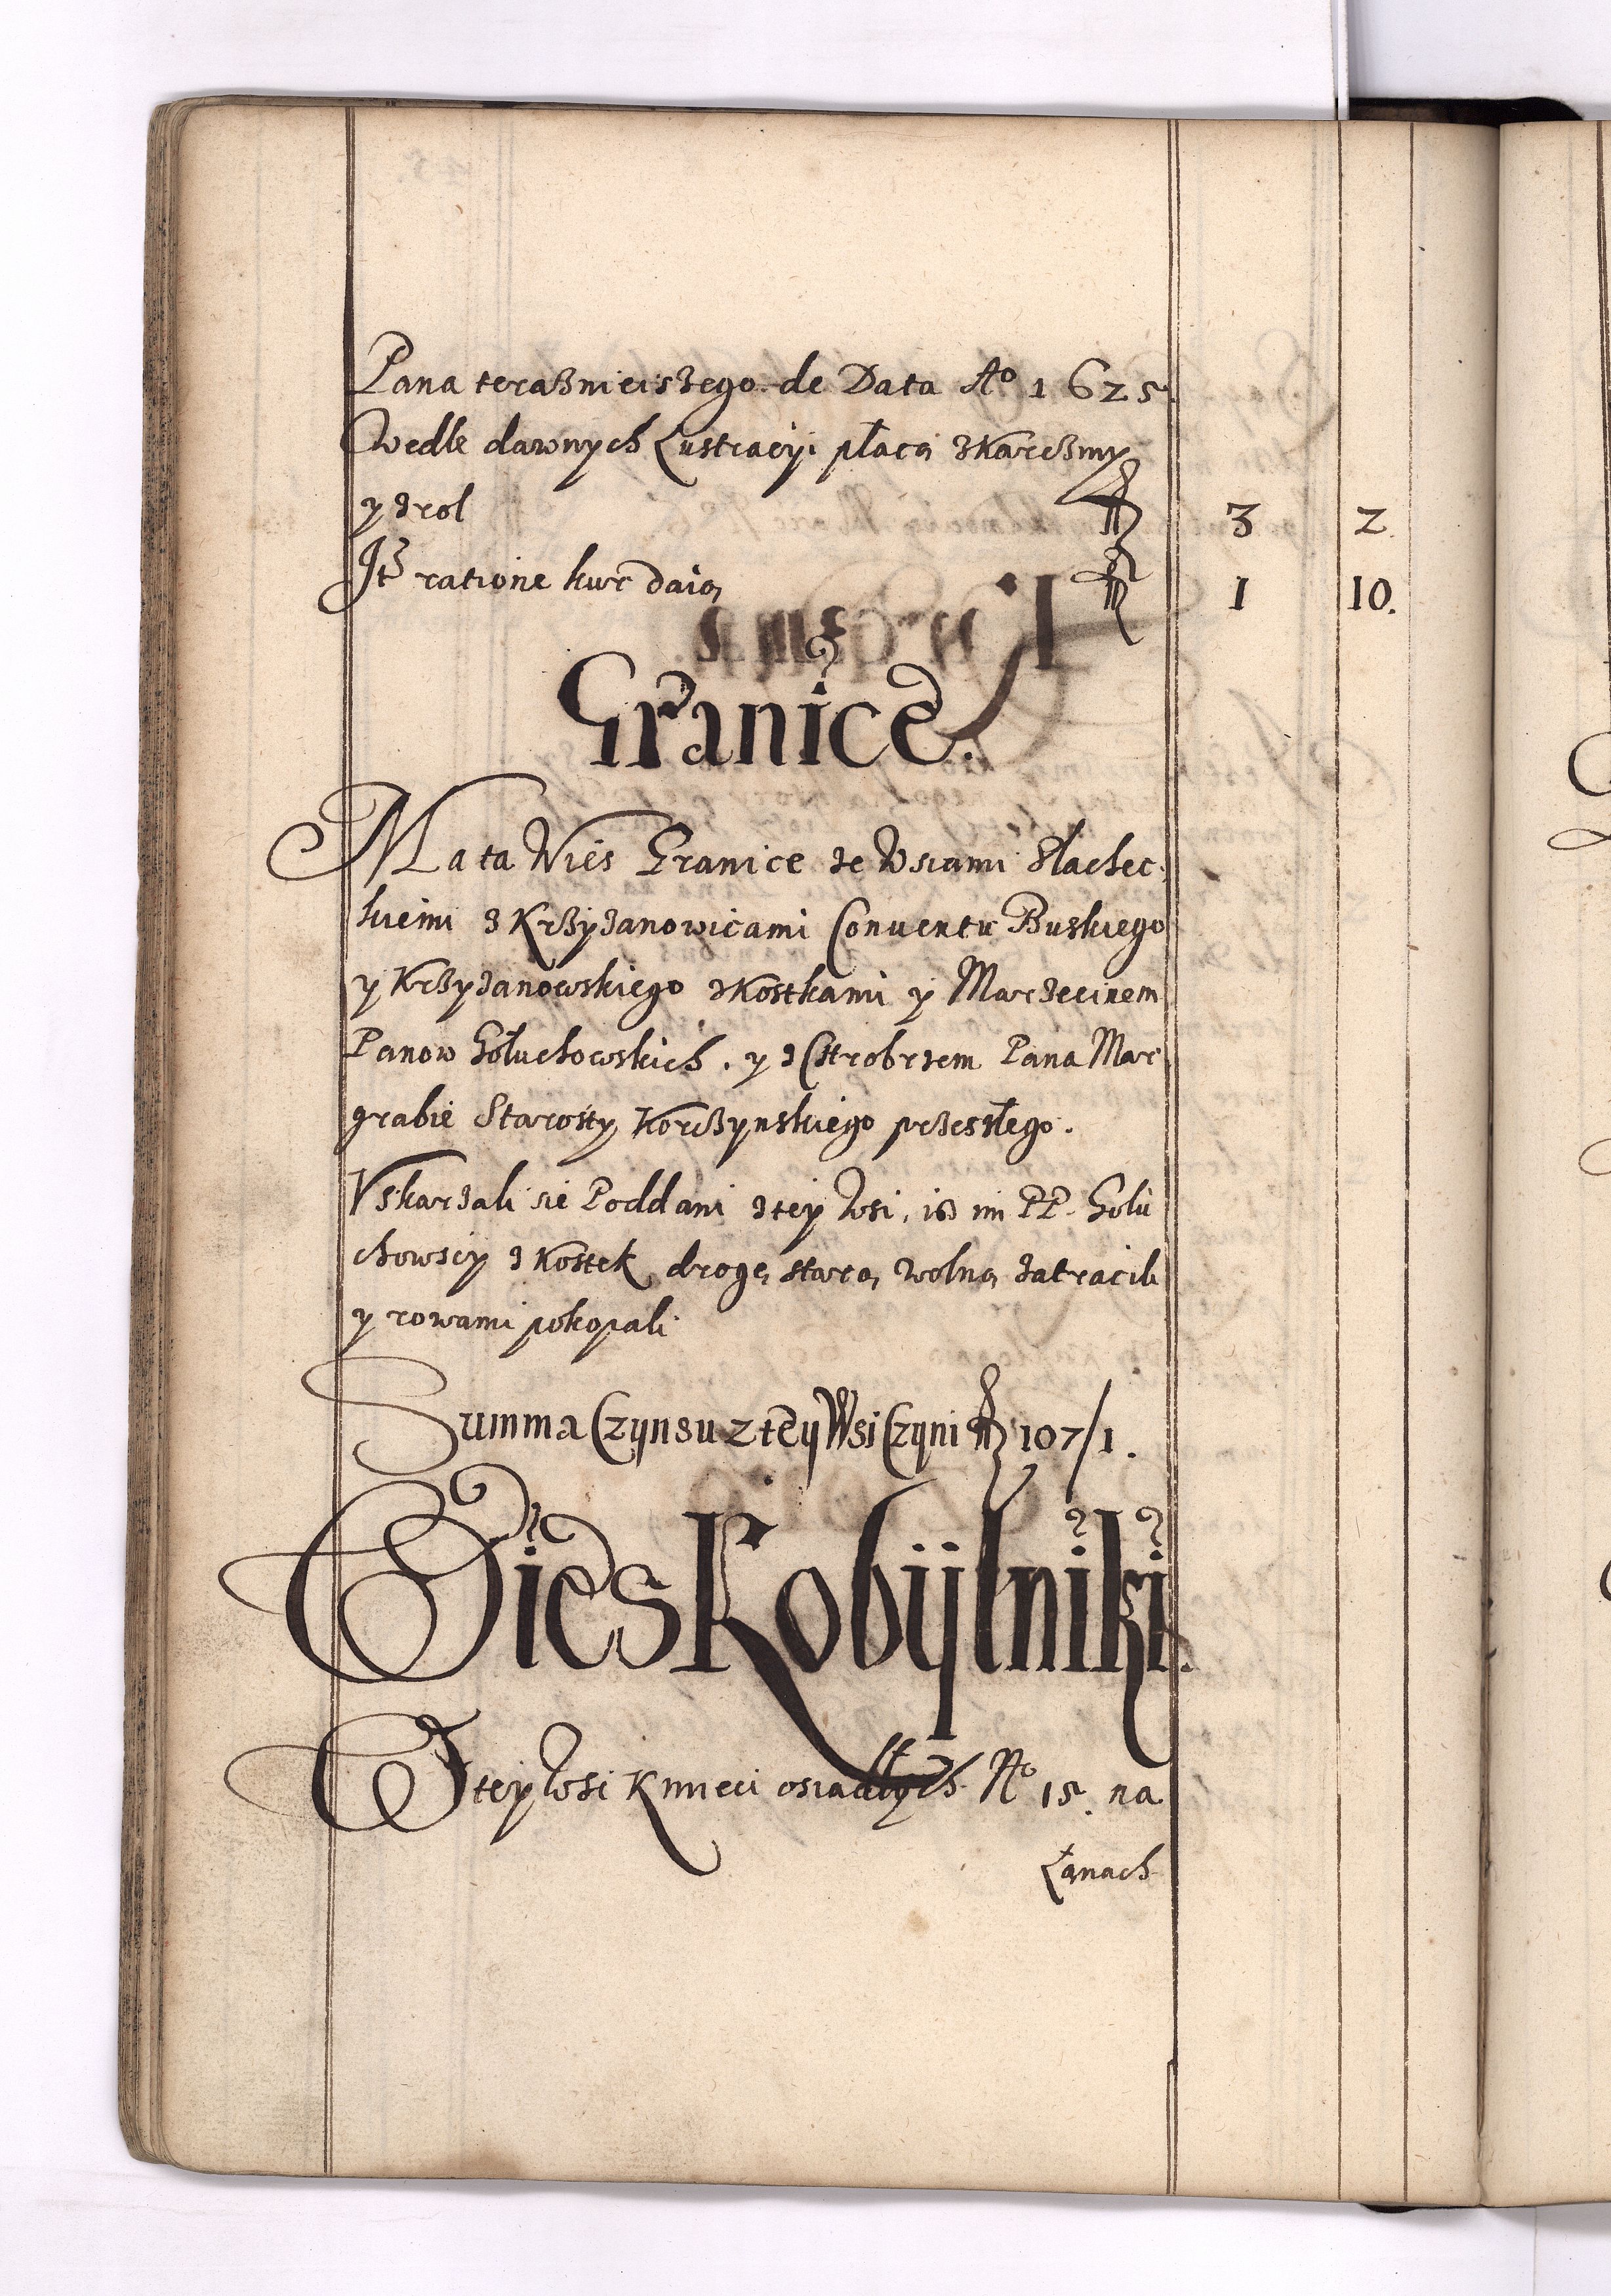 Pana teraznieiszego de Data Aº 1625.
Wedle dawnych Lustracyi płacą z karczmy
y z rol fl 3 2.
Itz ratione kur daią fl 1 10.
Granice.
Ma ta Wies Granice ze Wsiami Slachec
kiemi z Krzyzanowicami Conuentu Buskiego
y Krzyzanowskiego z Kostkami y Marzecinem
Panow Gołuchowskich. y z Chrobrzem Pana Mar
grabie Starosty Korczynskiego przeszłego.
Vskarzali sie Poddani z tey Wsi, iz im PP. Golu
chowscy z Kostek drogę starą wolną zatracili
y rowami pokopali
Summa Czynszu z tey Wsi Czyni fl 107/1.
Wies Kobylniki.
W tey Wsi Kmieci osiadłych Nº 15. na
Łanach